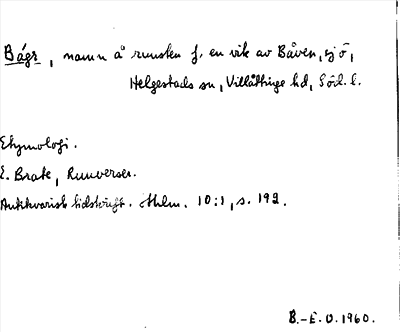 Bágr, namn å runsten f. en vik av Båven, sjö,
Helgestads sn, Villåttinge hd, Södl. l.
Etymologi.
E. Brate, Runverser.
Antikvarisk tidskrift. Sthlm. 10:1, s. 192.
B.-E. O. 1960.